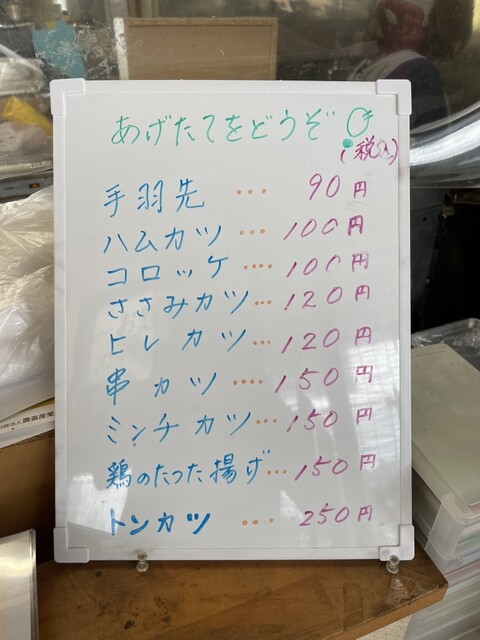 あげたてをどうぞ
(税込)
手羽先 … 90円
ハムカツ … 100円
コロッケ …. 100円
ささみカツ … 120円
ヒレカツ … 120円
串カツ …. 150円
ミンチカツ … 150円
鶏のたつた揚げ … 150円
トンカツ … 250円
農畜産業